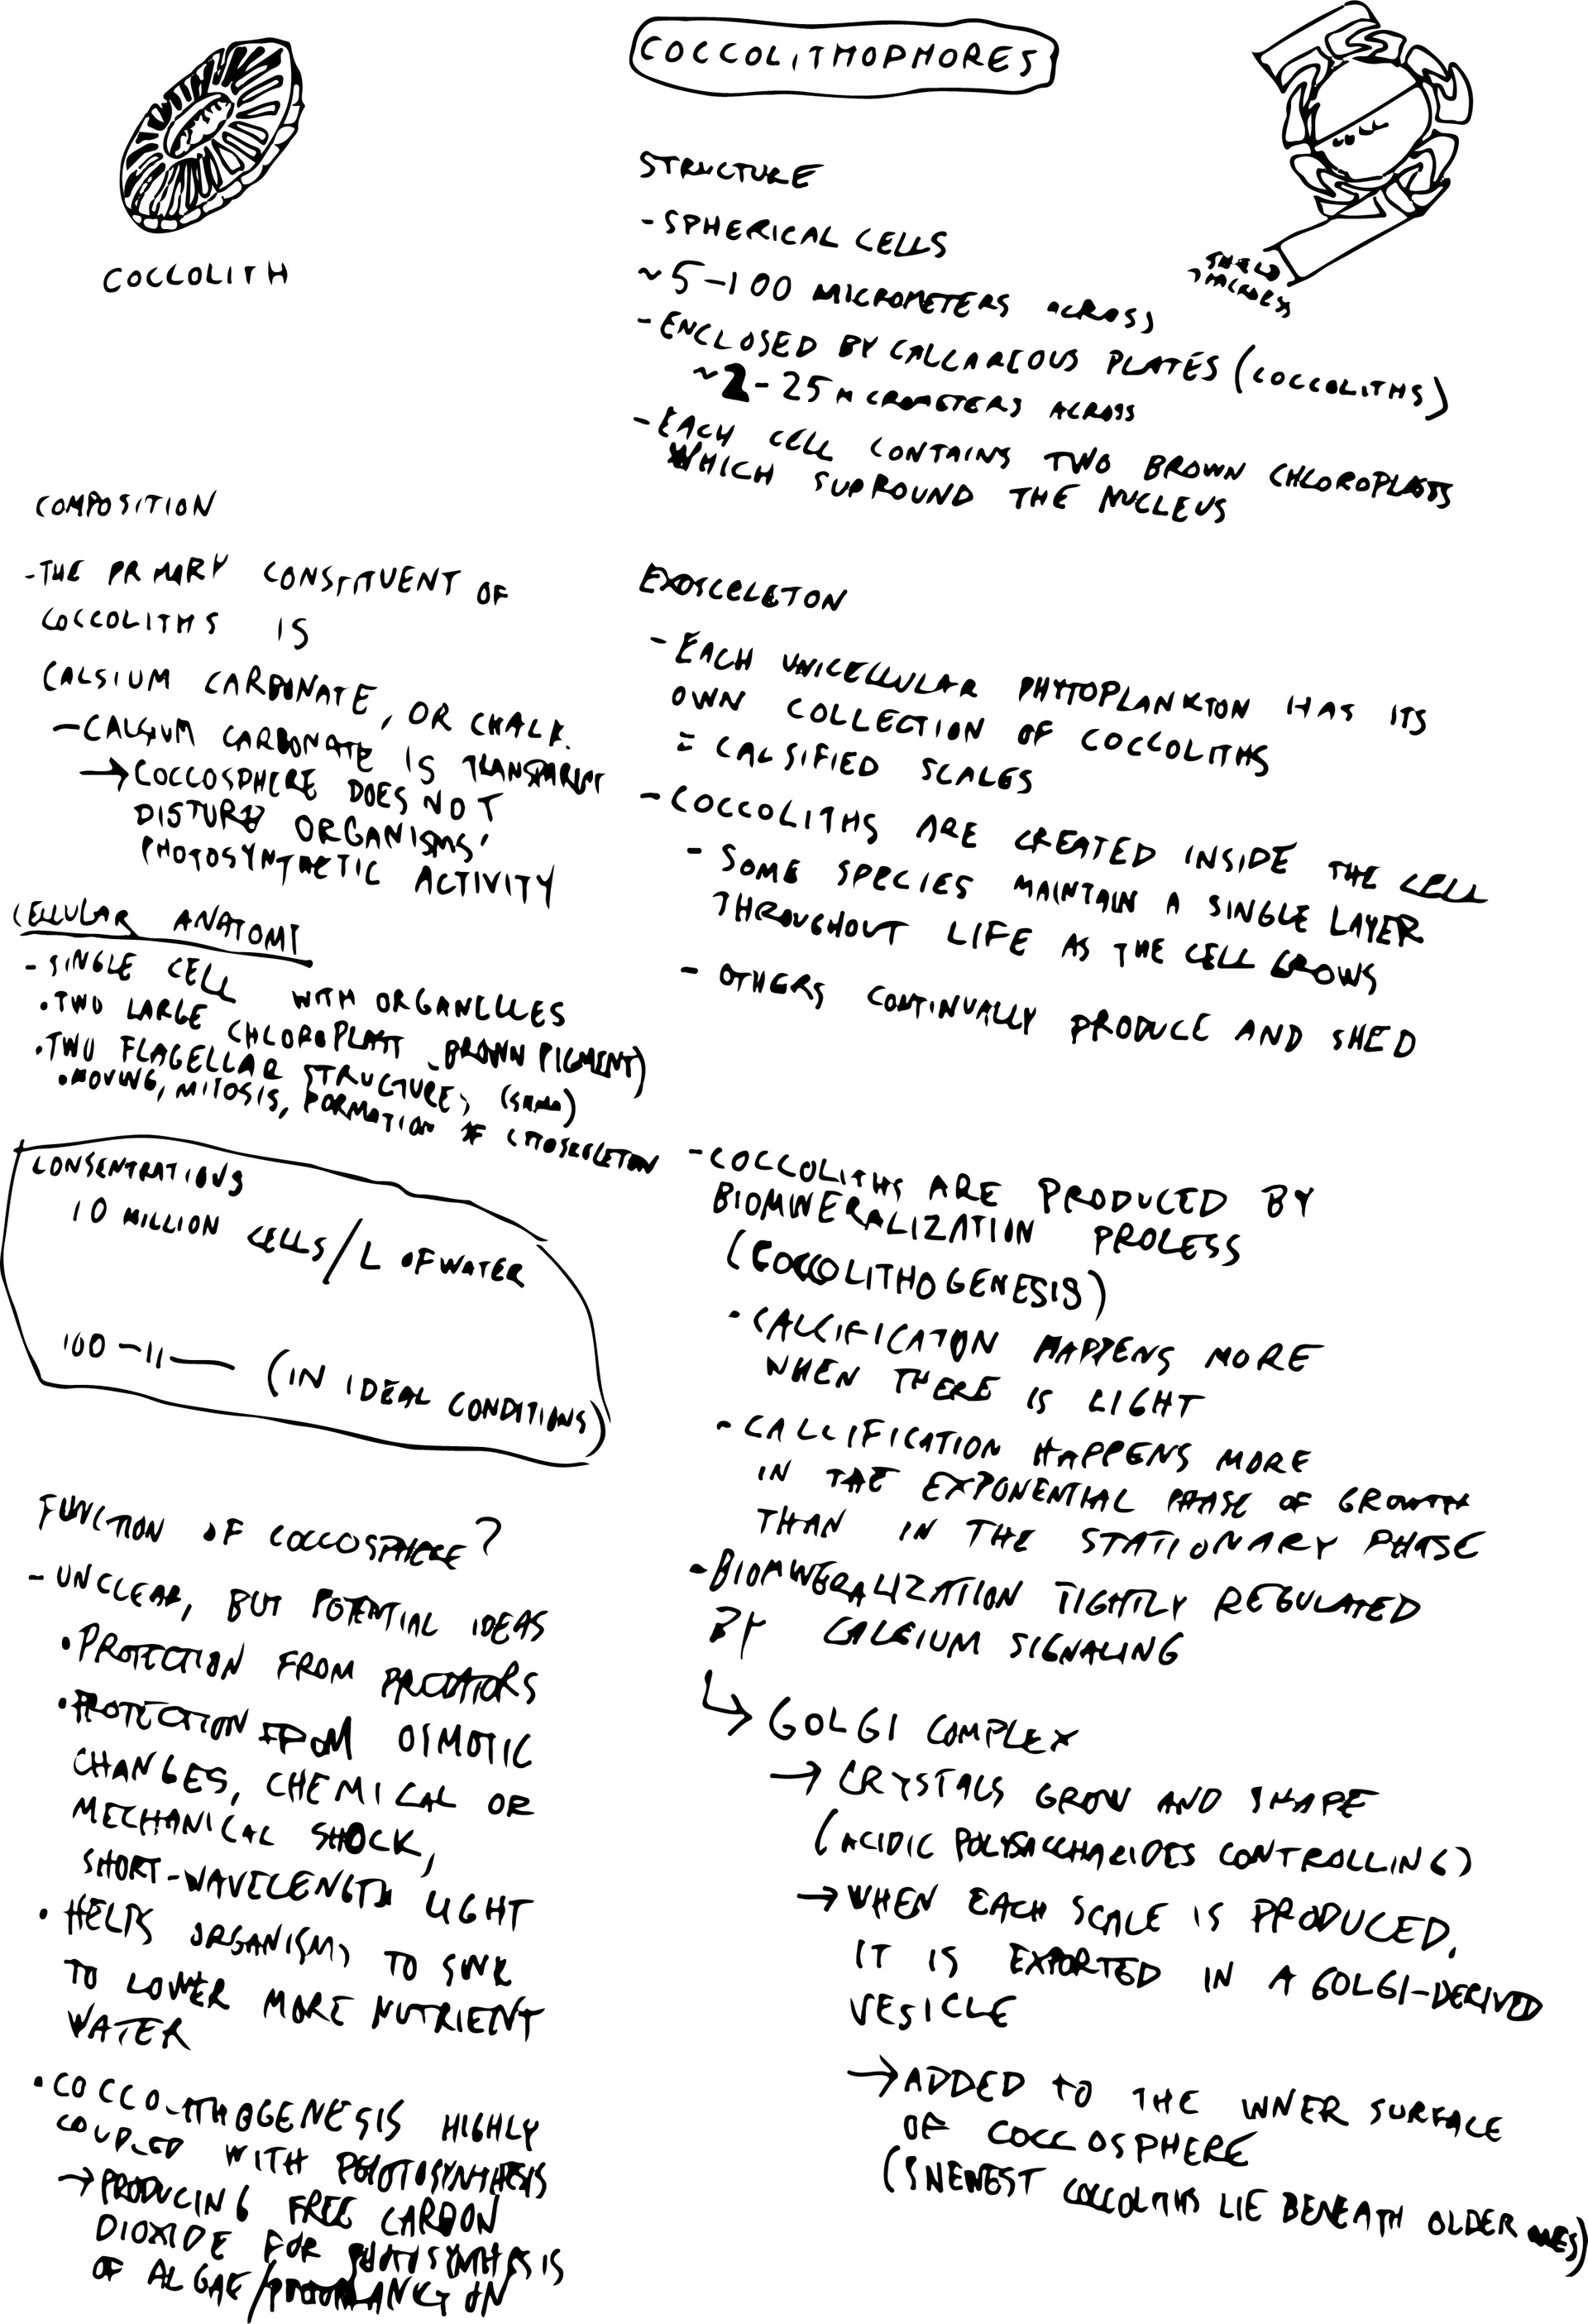 COCCOLITHOPHORES
COCCOLITH
CELL
SHIELD
STRUCTURE
- SPHERICAL CELLS
~5-100 MICROMETERS ACROSS
- ENCLOSED BY CALCAREOUS PLATES (COCCOLITHS)
~2-25 MICROMETERS ACROSS
- EACH CELL CONTAINS TWO BROWN CHLOROPLASTS
WHICH SURROUND THE NUCLEUS
COMPOSITION
- THE PRIMARY CONSTITUENT OF
COCCOLITHS IS
CALSIUM CARBONATE, OR CHALK.
- CALSIUM CARBONATE IS TRANSPARENT
→ COCCOSPHERE DOES NOT
DISTURB ORGANISMS'
PHOTOSYNTHETIC ACTIVITY
CELLULAR ANATOMY
- SINGLE CELL WITH ORGANELLES
• TWO LARGE CHLOROPLAST (BROWN PIGMENT)
• TWO FLAGELLAR STRUCTURES
• MOVING, MITOSIS, FORMATION OF CYTOSKELETON
CONSENTRATIONS
10 MILLION CELLS/L OF WATER
100 -11- (IN IDEAL CONDITIONS)
FUNCTION OF COCCOSPHERE?
- UNCLEAR, BUT POTENTIAL IDEAS
• PROTECTION FROM PREDATORS
• PROTECTION FROM OSMOTIC
CHANGES, CHEMICAL OR
MECHANICAL SHOCK,
SHORT-WAVELENGTH LIGHT
• HELPS ORGANISMS TO SINK
TO LOWER MORE NUTRIENT
WATER
• COCCOLITHOGENESIS HIGHLY
COUPLED WITH PHOTOSYNTHESIS
→ PRODUCING FREE CARBON
DIOXIDE FOR PHOTOSYNTHESIS
OF ALGAE/
EXOSCELETON
- EACH UNICELLULAR PHYTOPLANKTON HAS ITS
OWN COLLECTION OF COCCOLITHS
= CALSIFIED SCALES
- COCCOLITHS ARE CREATED INSIDE THE CELL
- SOME SPECIES MAINTAIN A SINGLE LAYER
THROUGHOUT LIFE AS THE CELL GROWS
- OTHERS CONTINUALLY PRODUCE AND SHED
- COCCOLITHS ARE PRODUCED BY
BIOMINERALIZATION PROCESS
(COCCOLITHOGENESIS)
• CALCIFICATION HAPPENS MORE
WHEN THERE IS LIGHT
- CALCIFICATION HAPPENS MORE
IN THE EXPONENTIAL PHASE OF GROWTH
THAN IN THE STATIONARY PHASE
- BIOMINERALIZATION TIGHTLY REGULATED
BY CALCIUM SIGNALING
↳ GOLGI COMPLEX
→ CRYSTALS GROW AND SHAPE
(ACIDIC POLYSACCHARIDES CONTROLLING)
→ WHEN EACH SCALE IS PRODUCED,
IT IS EXPORTED IN A GOLGI-DERIVED
VESICLE
→ ADDED TO THE INNER SURFACE
OF COCCOSPHERE
(NEWEST COCCOLITHS LIE BENEATH OLDER ONES)